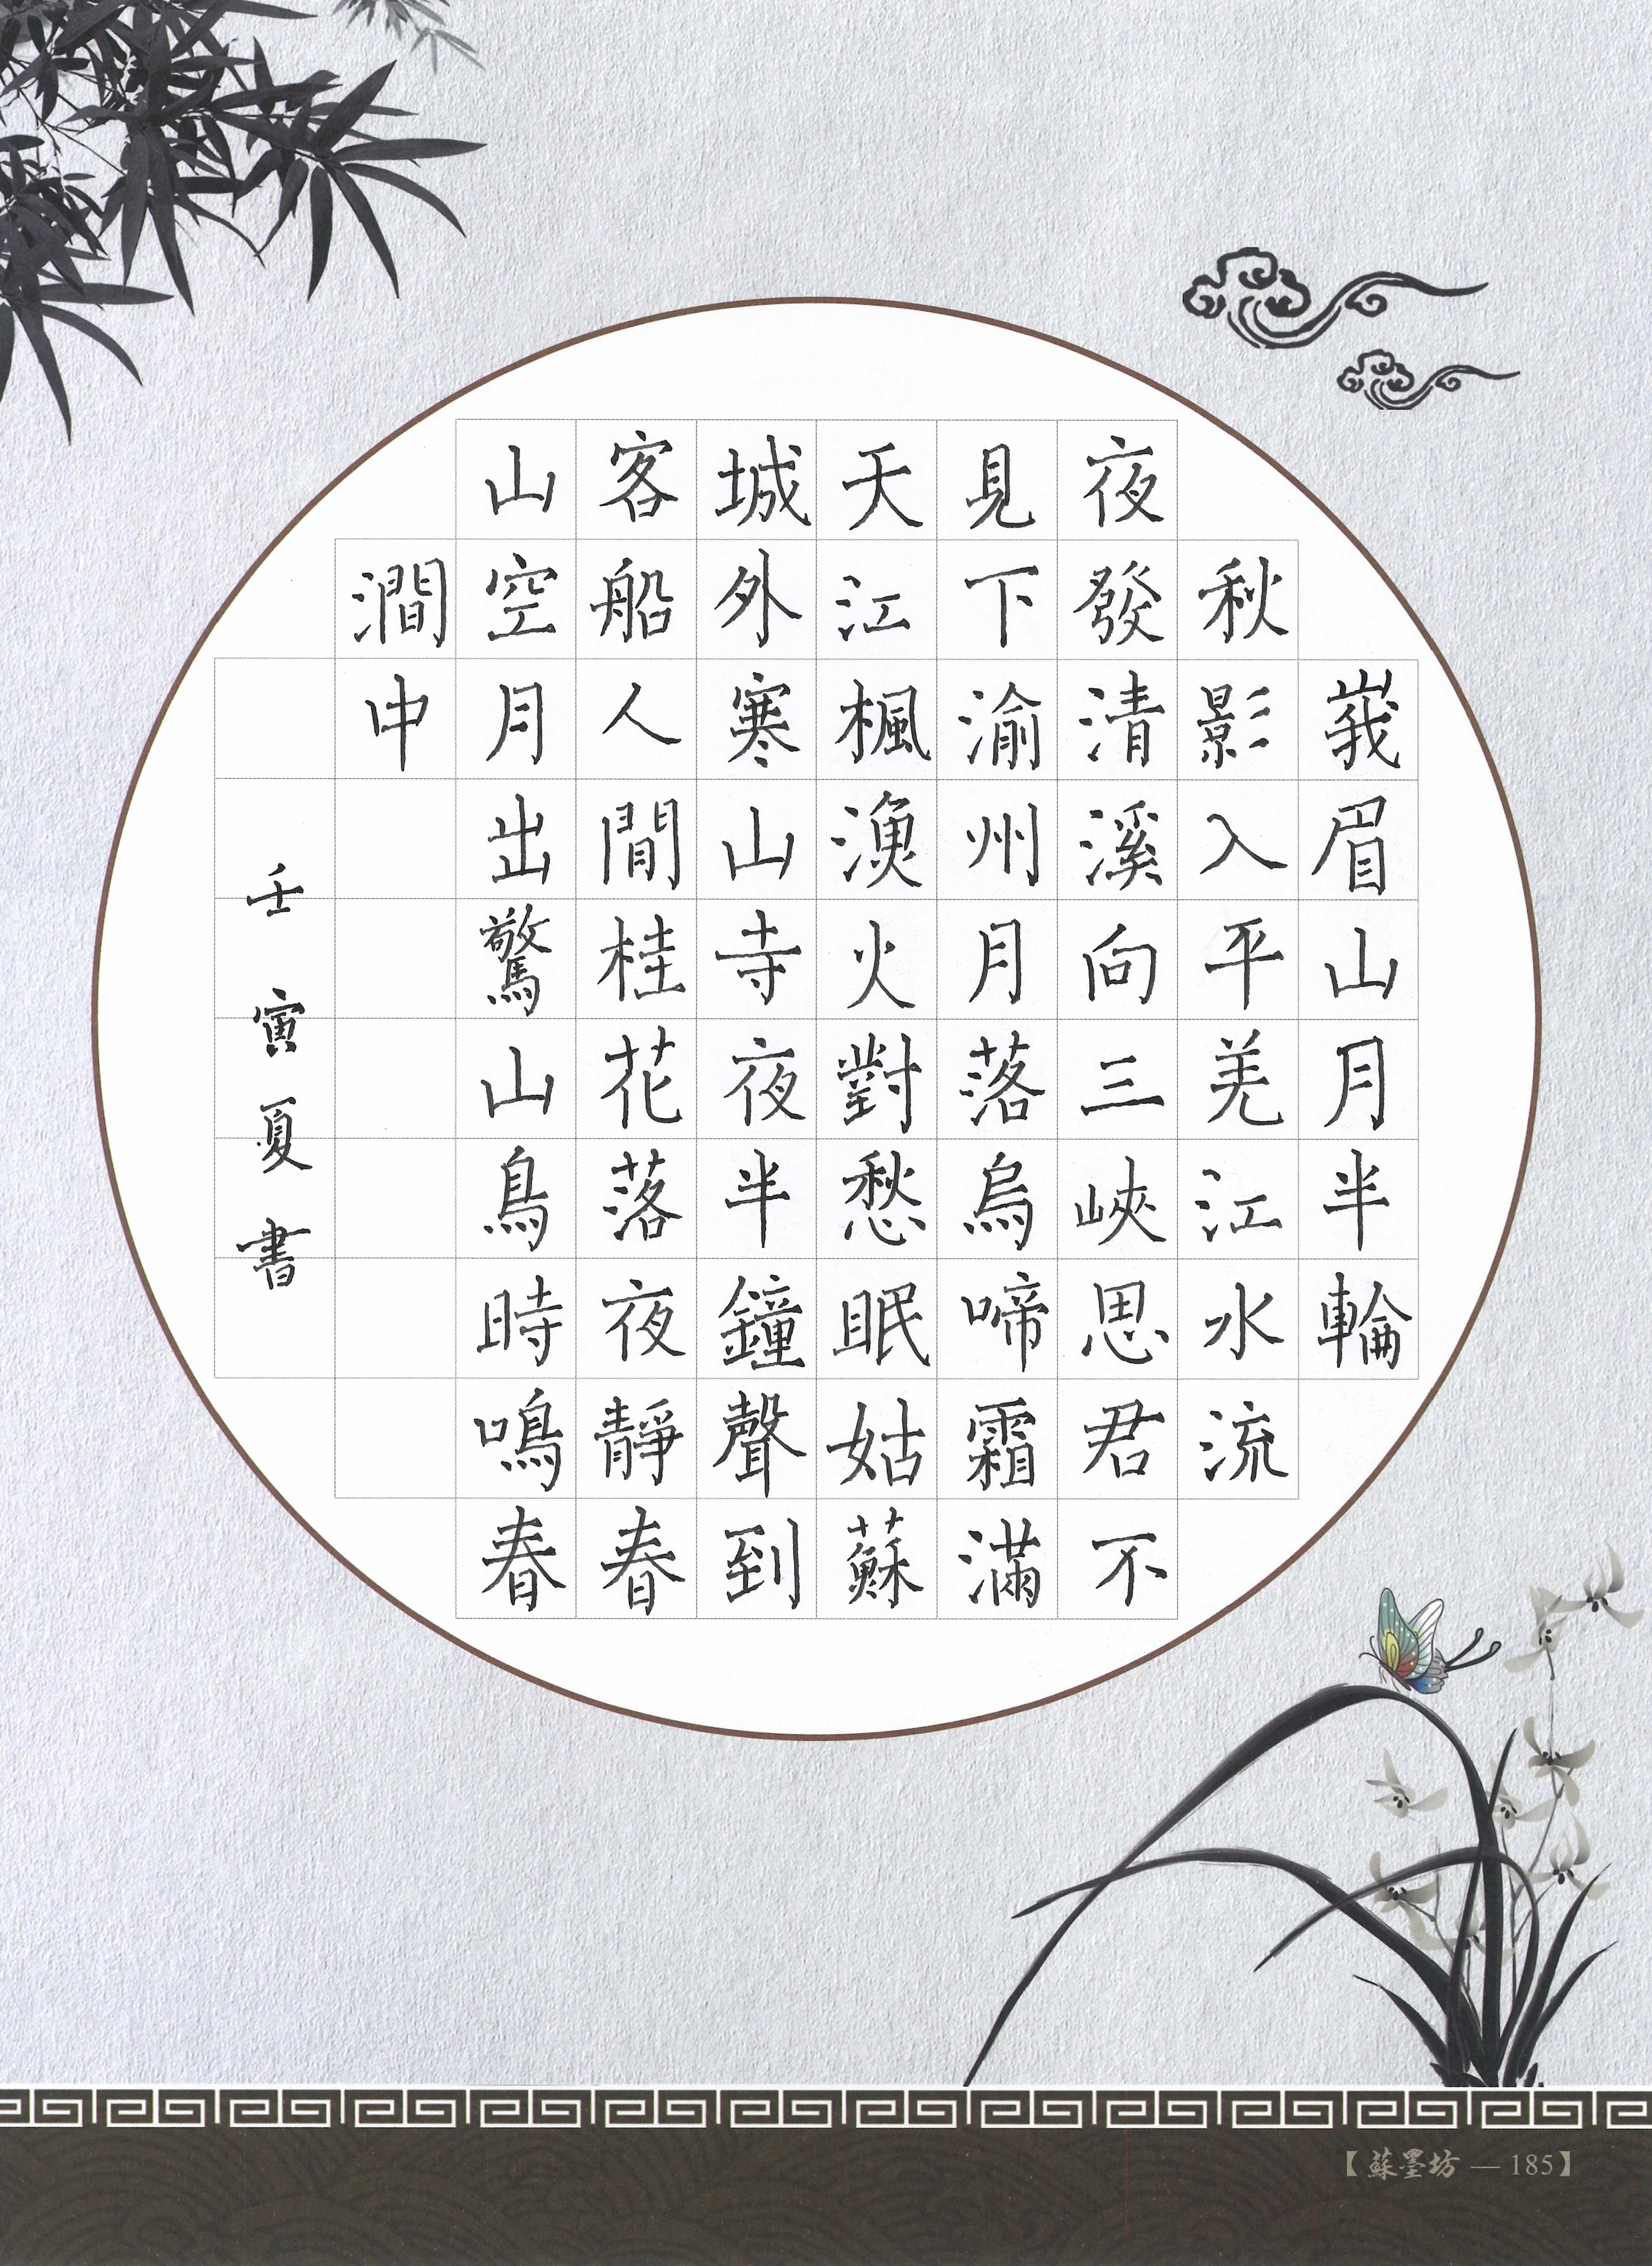 峩眉山月半輪
秋影入平羌江水流
夜發清溪向三峽思君不
見下渝州月落烏啼霜滿
天江楓漁火對愁眠姑蘇
城外寒山寺夜半鐘聲到
客船人間桂花落夜靜春
山空月出驚山鳥時鳴春
澗中
壬寅夏書
【蘇墨坊 — 185】